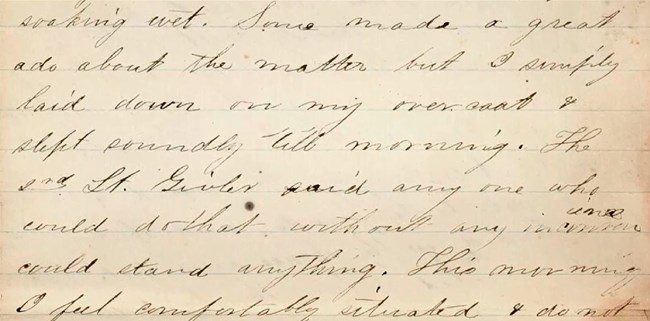 soaking wet. Some made a great
ado about the matter but I simply
laid down on my over coat &
slept soundly till morning. The
Lt. Givler said any one who
could do that without any inconven
ience
could stand anything. This morning
I feel comfortably situated & do not